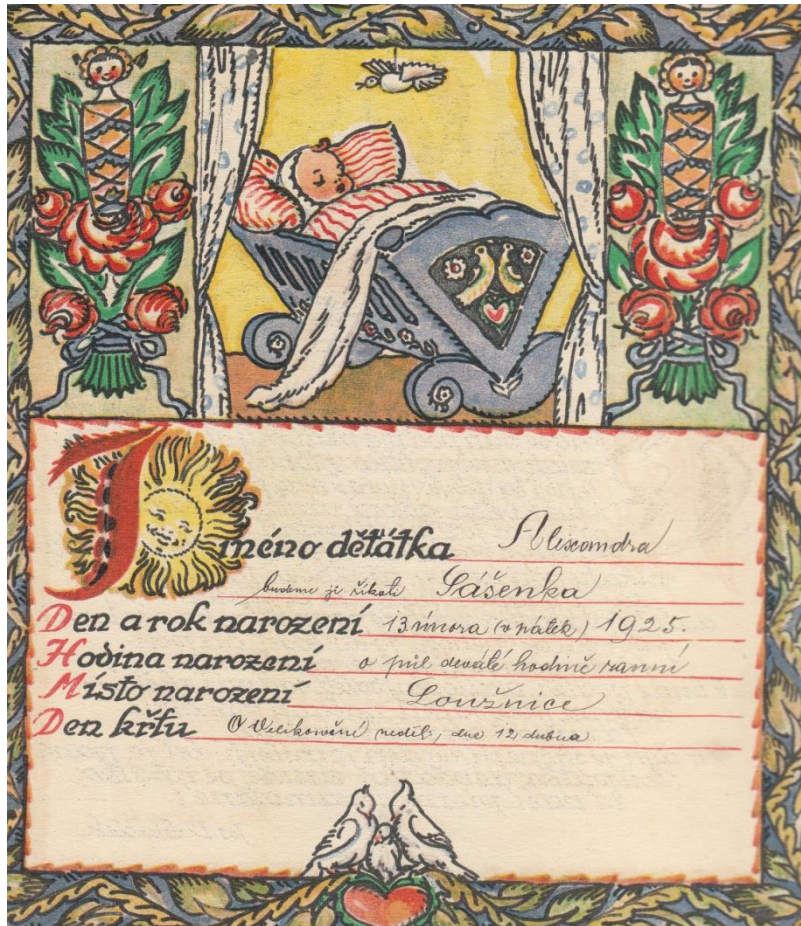 Jméno děťátka Alexandra
budeme jí říkati Sášenka
Den a rok narození 13. února (v pátek) 1925.
Hodina narození o půl deváté hodině ranní
Místo narození Loužnice
Den křtu O Velikonoční neděli, dne 12. dubna